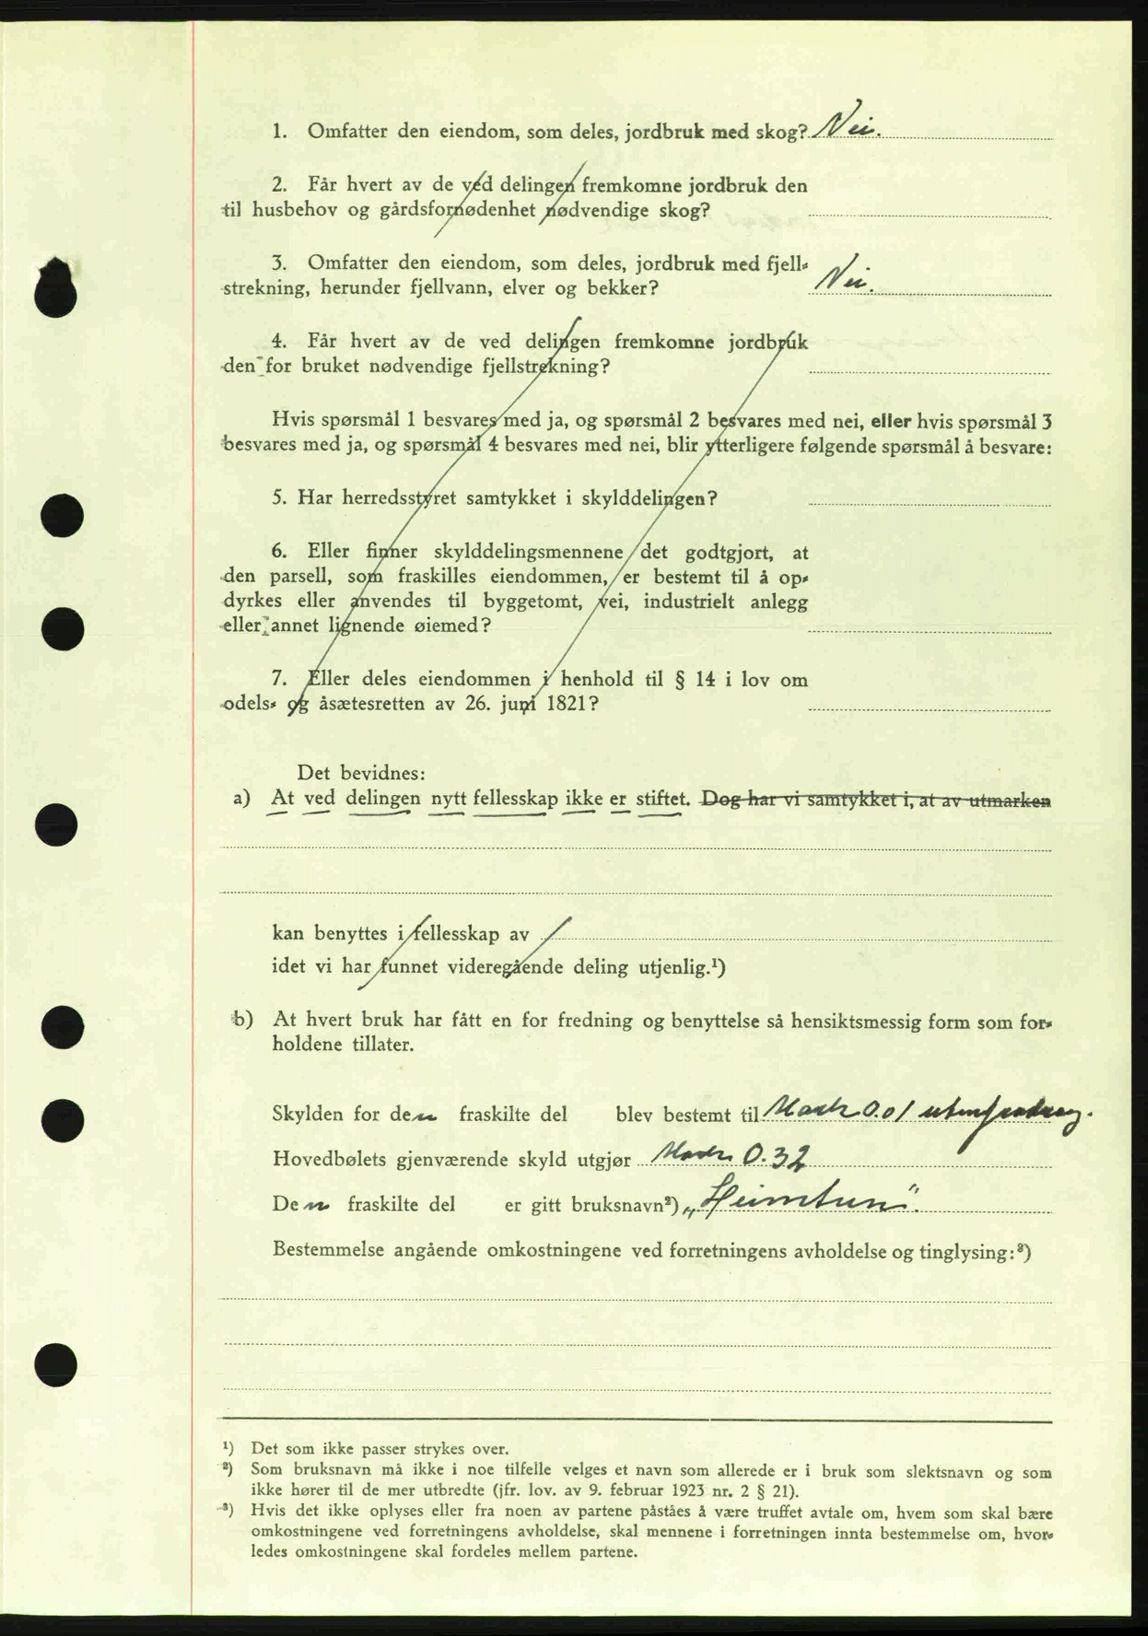 1. Omfatter den eiendom, som deles, jordbruk med skog? Nei.
2. Får hvert av de ved delingen fremkomne jordbruk den
til husbehov og gårdsfornødenhet nødvendige skog?
3. Omfatter den eiendom, som deles, jordbruk med fjell-
strekning, herunder fjellvann, elver og bekker? Nei.
4. Får hvert av de ved delingen fremkomne jordbruk
den for bruket nødvendige fjellstrekning?
Hvis spørsmål 1 besvares med ja, og spørsmål 2 besvares med nei, eller hvis spørsmål 3
besvares med ja, og spørsmål 4 besvares med nei, blir ytterligere følgende spørsmål å besvare:
5. Har herredsstyret samtykket i skylddelingen?
6. Eller finner skylddelingsmennene det godtgjort, at
den parsell, som fraskilles eiendommen, er bestemt til å op-
dyrkes eller anvendes til byggetomt, vei, industrielt anlegg
eller annet lignende øiemed?
7. Eller deles eiendommen i henhold til § 14 i lov om
odels- og åsætesretten av 26. juni 1821?
Det bevidnes:
a) At ved delingen nytt fellesskap ikke er stiftet. Dog har vi samtykket i, at av utmarken
kan benyttes i fellesskap av
idet vi har funnet videregående deling utjenlig.¹)
b) At hvert bruk har fått en for fredning og benyttelse så hensiktsmessig form som for-
holdene tillater.
Skylden for den fraskilte del blev bestemt til Mark 0.01 uten fradrag.
Hovedbølets gjenværende skyld utgjør Mark 0.32
Den fraskilte del er gitt bruksnavn²) „Heimtun".
Bestemmelse angående omkostningene ved forretningens avholdelse og tinglysing:³)
¹) Det som ikke passer strykes over.
²) Som bruksnavn må ikke i noe tilfelle velges et navn som allerede er i bruk som slektsnavn og som
ikke hører til de mer utbredte (jfr. lov. av 9. februar 1923 nr. 2 § 21).
³) Hvis det ikke oplyses eller fra noen av partene påståes å være truffet avtale om, hvem som skal bære
omkostningene ved forretningens avholdelse, skal mennene i forretningen innta bestemmelse om, hvor-
ledes omkostningene skal fordeles mellem partene.